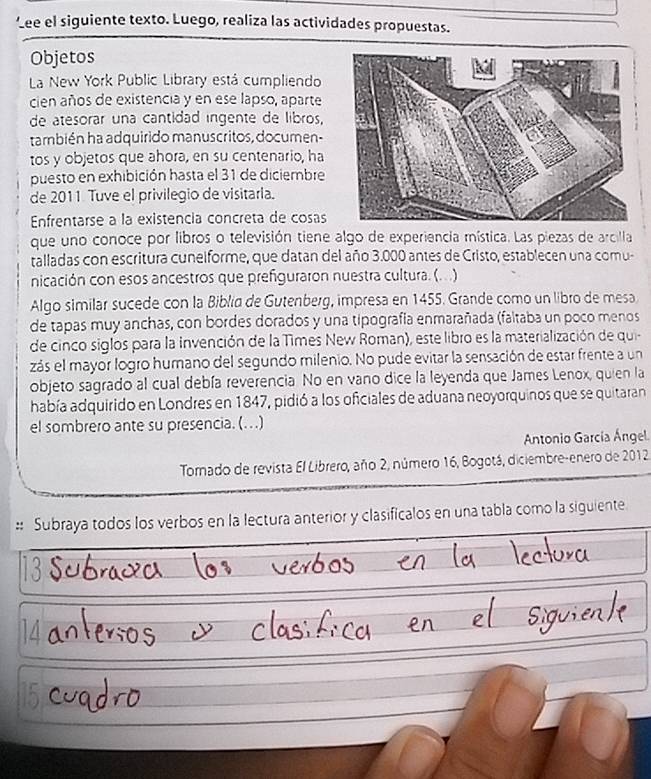 Lee el siguiente texto. Luego, realiza las actividades propuestas.
Objetos
La New York Public Library está cumpliendo
cien años de existencia y en ese lapso, aparte
de atesorar una cantidad ingente de libros,
también ha adquirido manuscritos, documen-
tos y objetos que ahora, en su centenario, ha
puesto en exhibición hasta el 31 de diciembre
de 2011. Tuve el privilegio de visitarla.
Enfrentarse a la existencia concreta de cosas
que uno conoce por libros o televisión tiene algo de experiencia mística. Las piezas de arcilla
talladas con escritura cuneiforme, que datan del año 3.000 antes de Cristo, establecen una comu-
nicación con esos ancestros que prefiguraron nuestra cultura. (...)
Algo similar sucede con la Biblia de Gutenberg, impresa en 1455. Grande como un libro de mesa,
de tapas muy anchas, con bordes dorados y una tipografía enmarañada (faltaba un poco menos
de cinco siglos para la invención de la Times New Roman), este libro es la materialización de qui-
zás el mayor logro humano del segundo milenio. No pude evitar la sensación de estar frente a un
objeto sagrado al cual debía reverencia. No en vano dice la leyenda que James Lenox, quien la
había adquirido en Londres en 1847, pidió a los oficiales de aduana neoyorquinos que se quitaran
el sombrero ante su presencia. (...)
Antonio García Ángel.
Tomado de revista El Librero, año 2, número 16, Bogotá, diciembre-enero de 2012
:: Subraya todos los verbos en la lectura anterior y clasifícalos en una tabla como la siguiente.
13 Subraya los verbos en la lectura
14 anterios y clasifica en el siguiente
15 cuadro